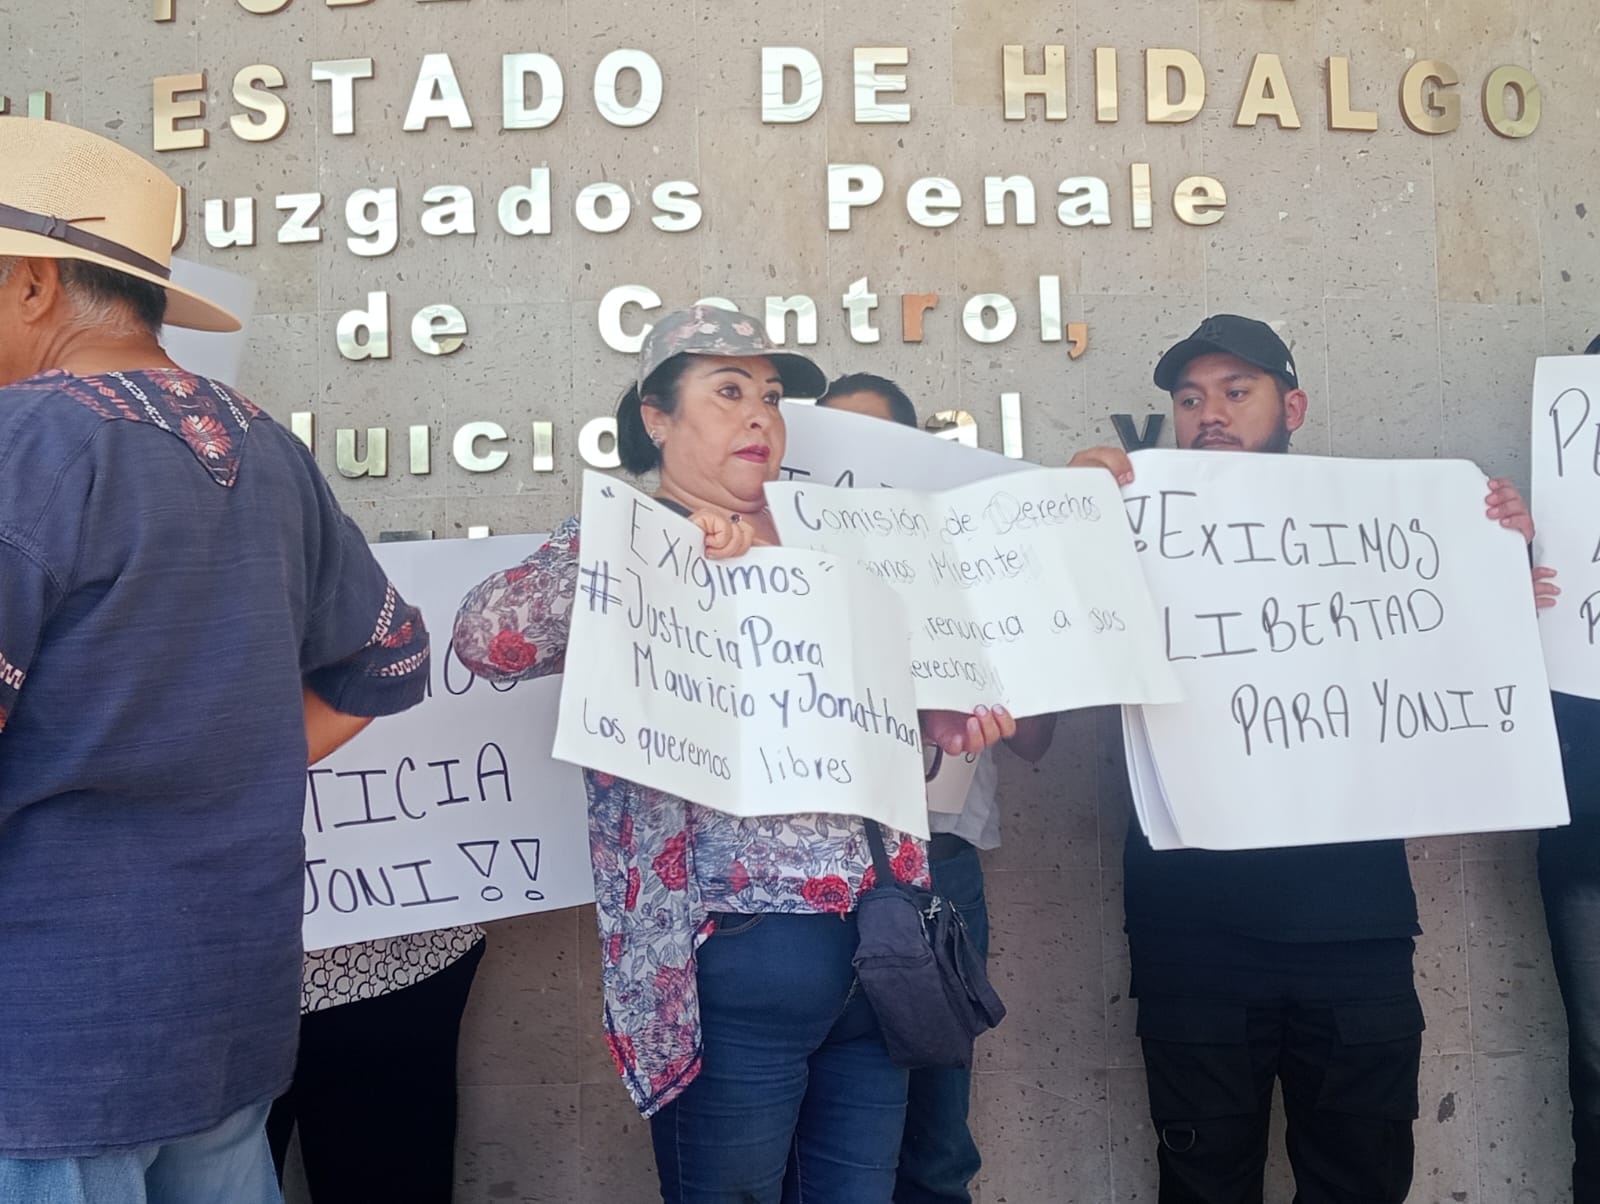 ESTADO DE HIDALGO
Juzgados Penale
de Control,
Juicio
al y
"EXigimos"
#Justicia Para
Mauricio y Jonathan
Los queremos libres
Comisión de Derechos
Miente
renuncia a sos
¡EXIGIMOS
LIBERTAD
PARA YONI!
TICIA
JONI!!